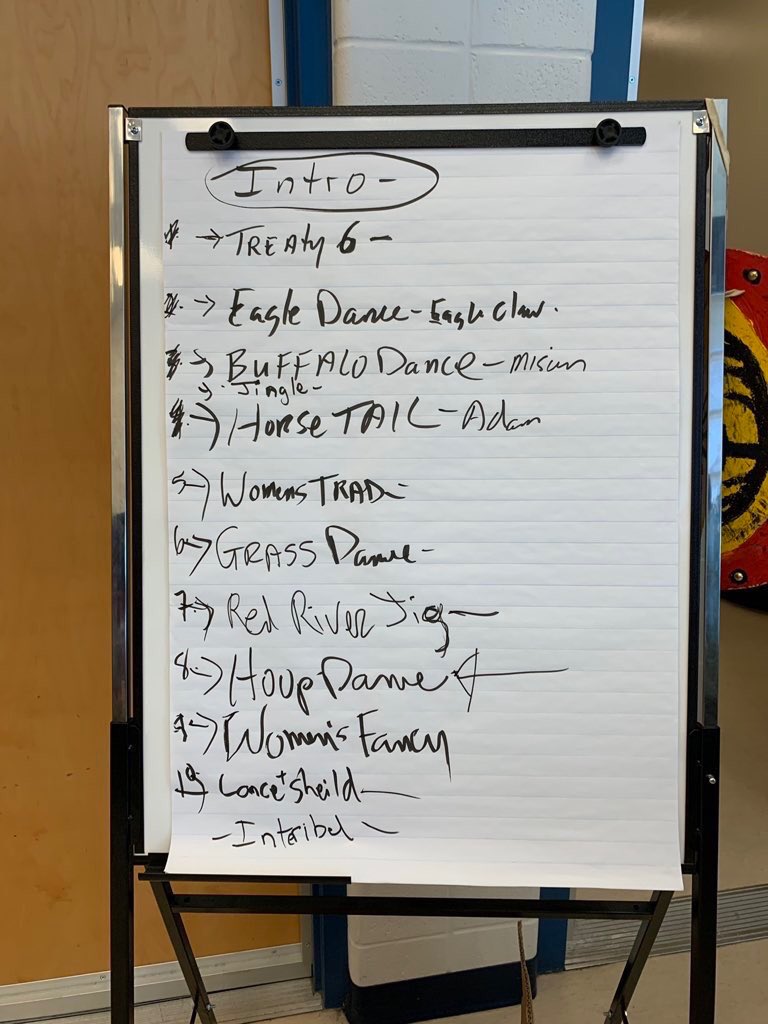 Intro-
→ TREAty 6 -
→ Eagle Dance - Eagle Claw.
→ BUFFALO Dance -
→ Jingle -
→ Horse TAIL - Adam
5 → Womens TRAD -
6 → GRASS Dance -
7 → Red River Jig -
8 → Hoop Dance ←
9 → Women's Fancy
10 → Lance + Sheild -
- Interibel -